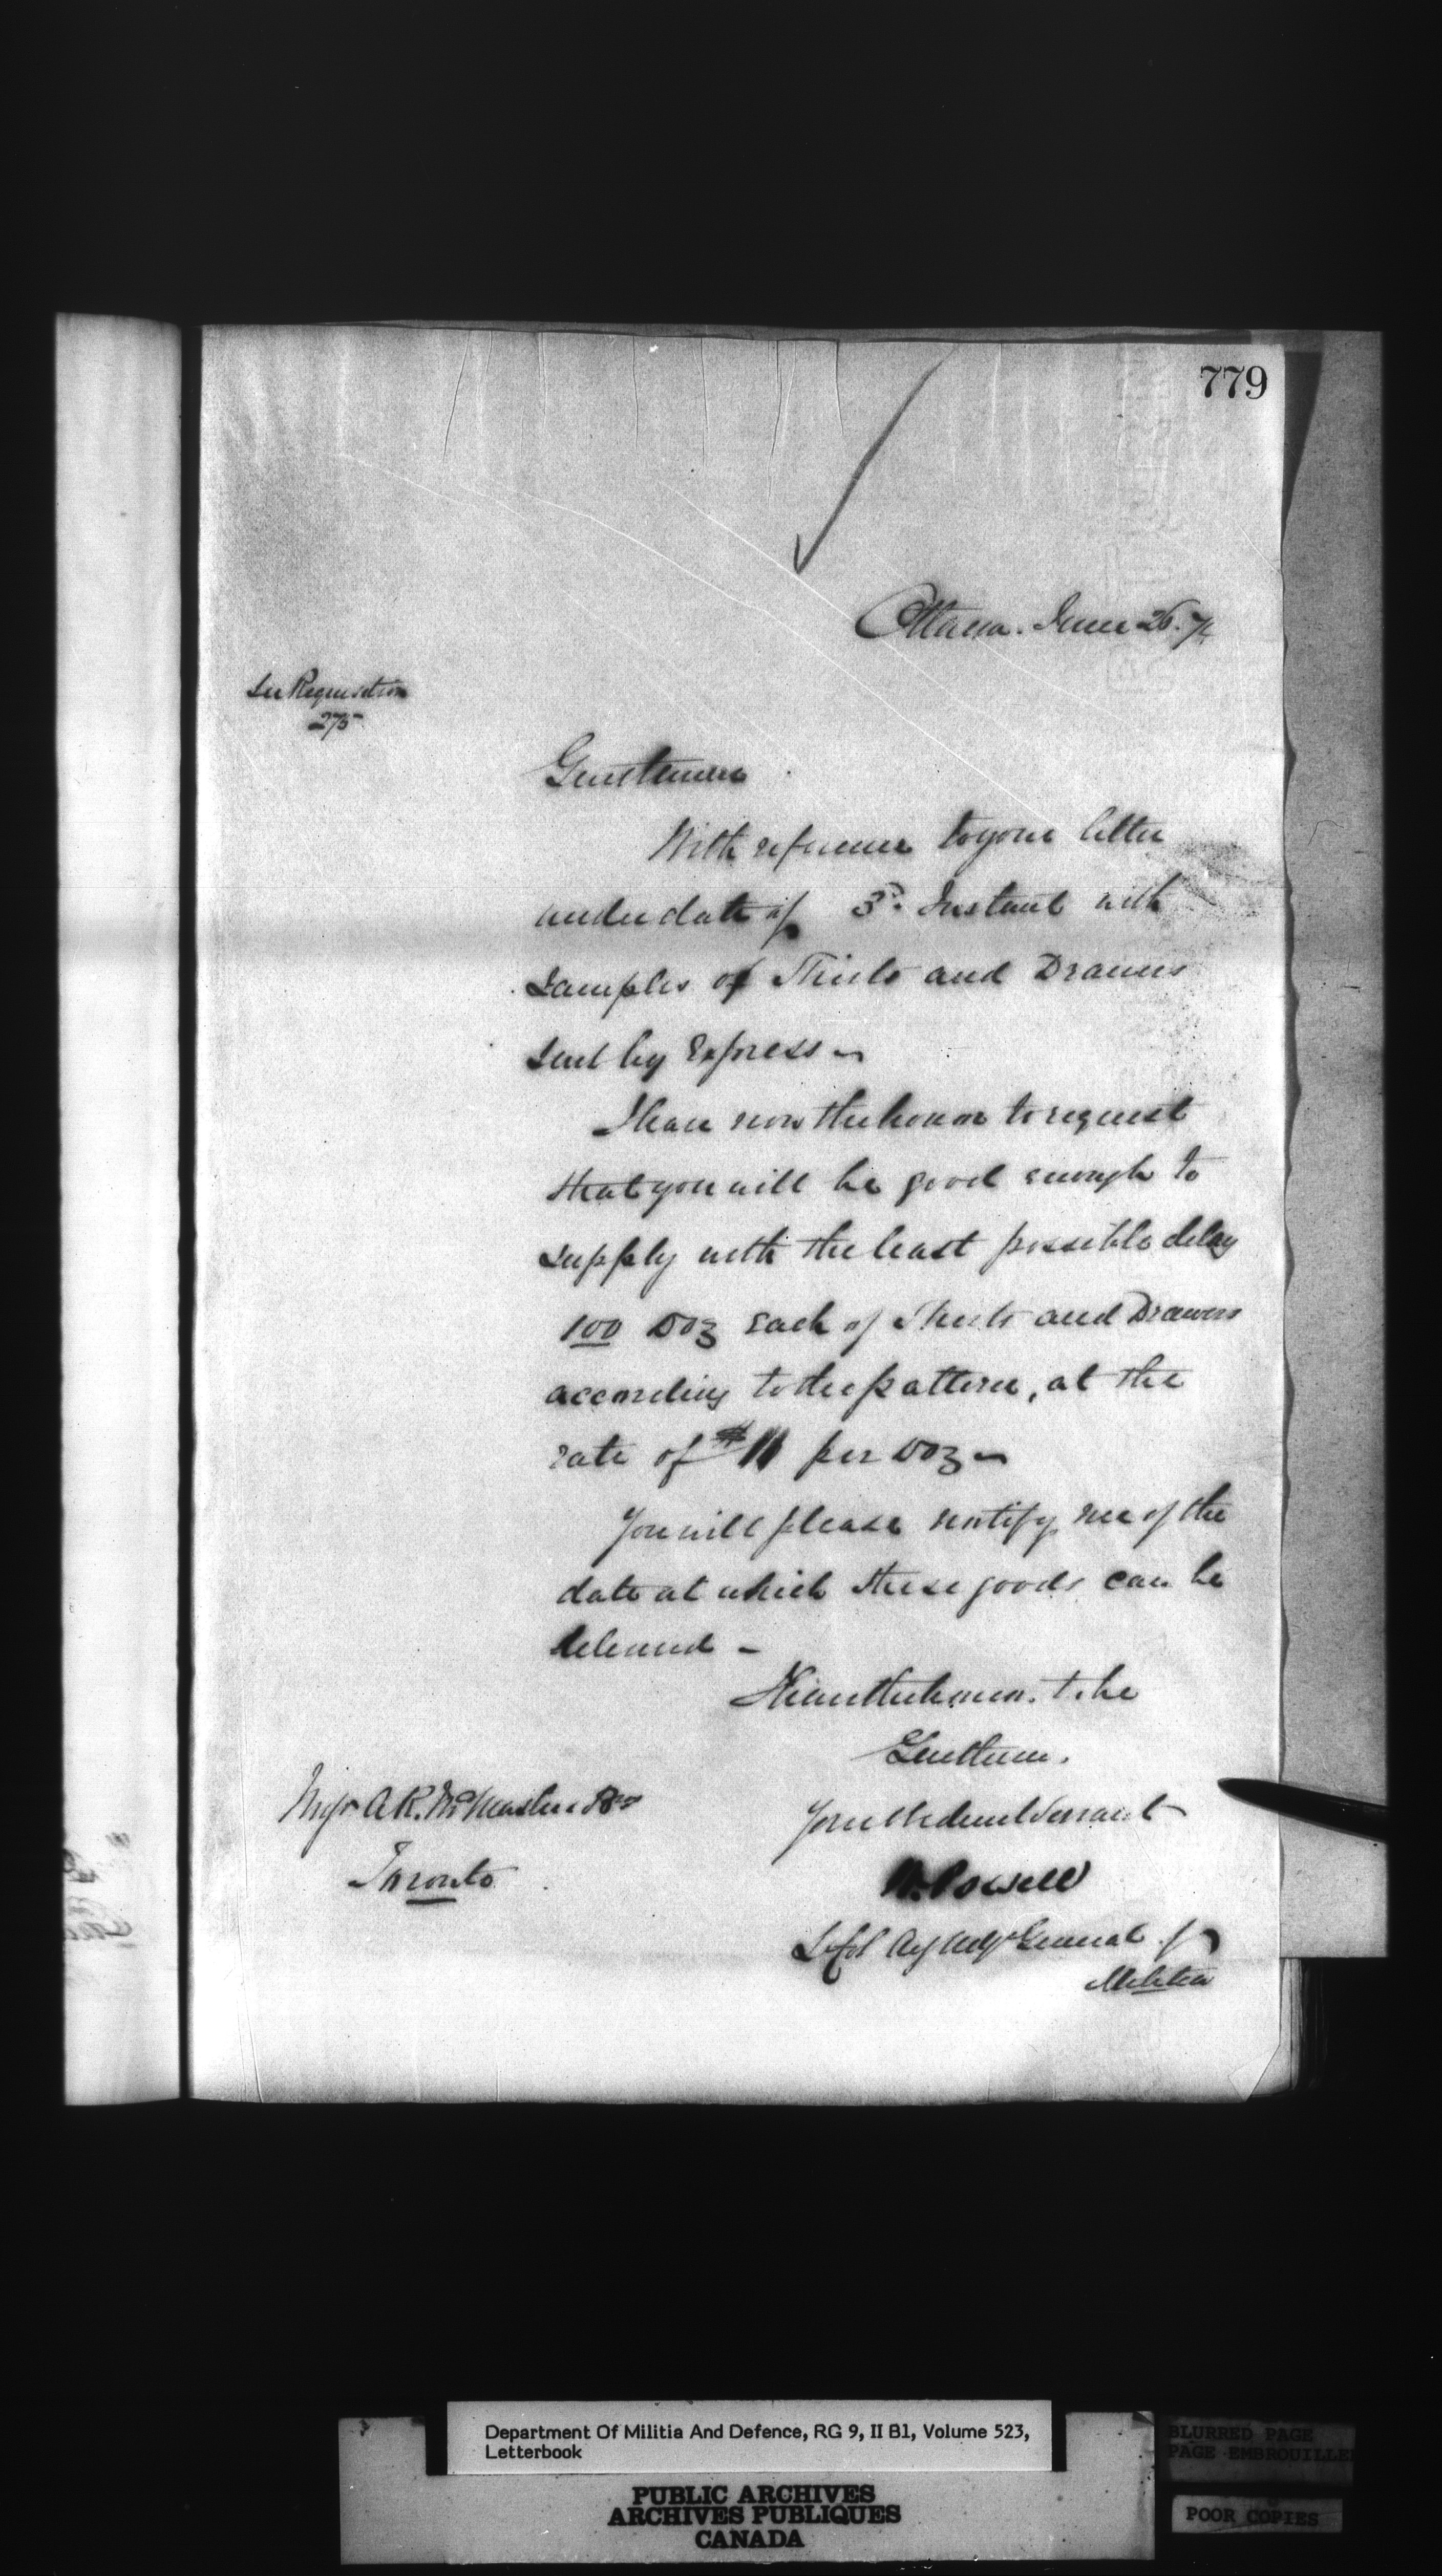 779
Ottawa. June 26.
See Requisition
275
Gentlemen
With reference to your letter
under date of 3d. Instant with
Samples of Shirts and Drawers
sent by Express ~
I have now the honor to request
that you will be good enough to
supply with the least possible delay
100 Doz Each of Shirts and Drawers
according to the pattern, at the
rate of $11 per Doz ~
You will please notify me of the
date at which these goods can be
delivered -
I have the honor. to be
Gentlemen.
Your Obedient Servant
W. Powell
Lt Col Actg Adjt General of
Militia
Messrs A.R. McMaster & Bro
Toronto
Department Of Militia And Defence, RG 9, II B1, Volume 523,
Letterbook
PUBLIC ARCHIVES
ARCHIVES PUBLIQUES
CANADA
BLURRED PAGE
PAGE EMBROUILLE
POOR COPIES